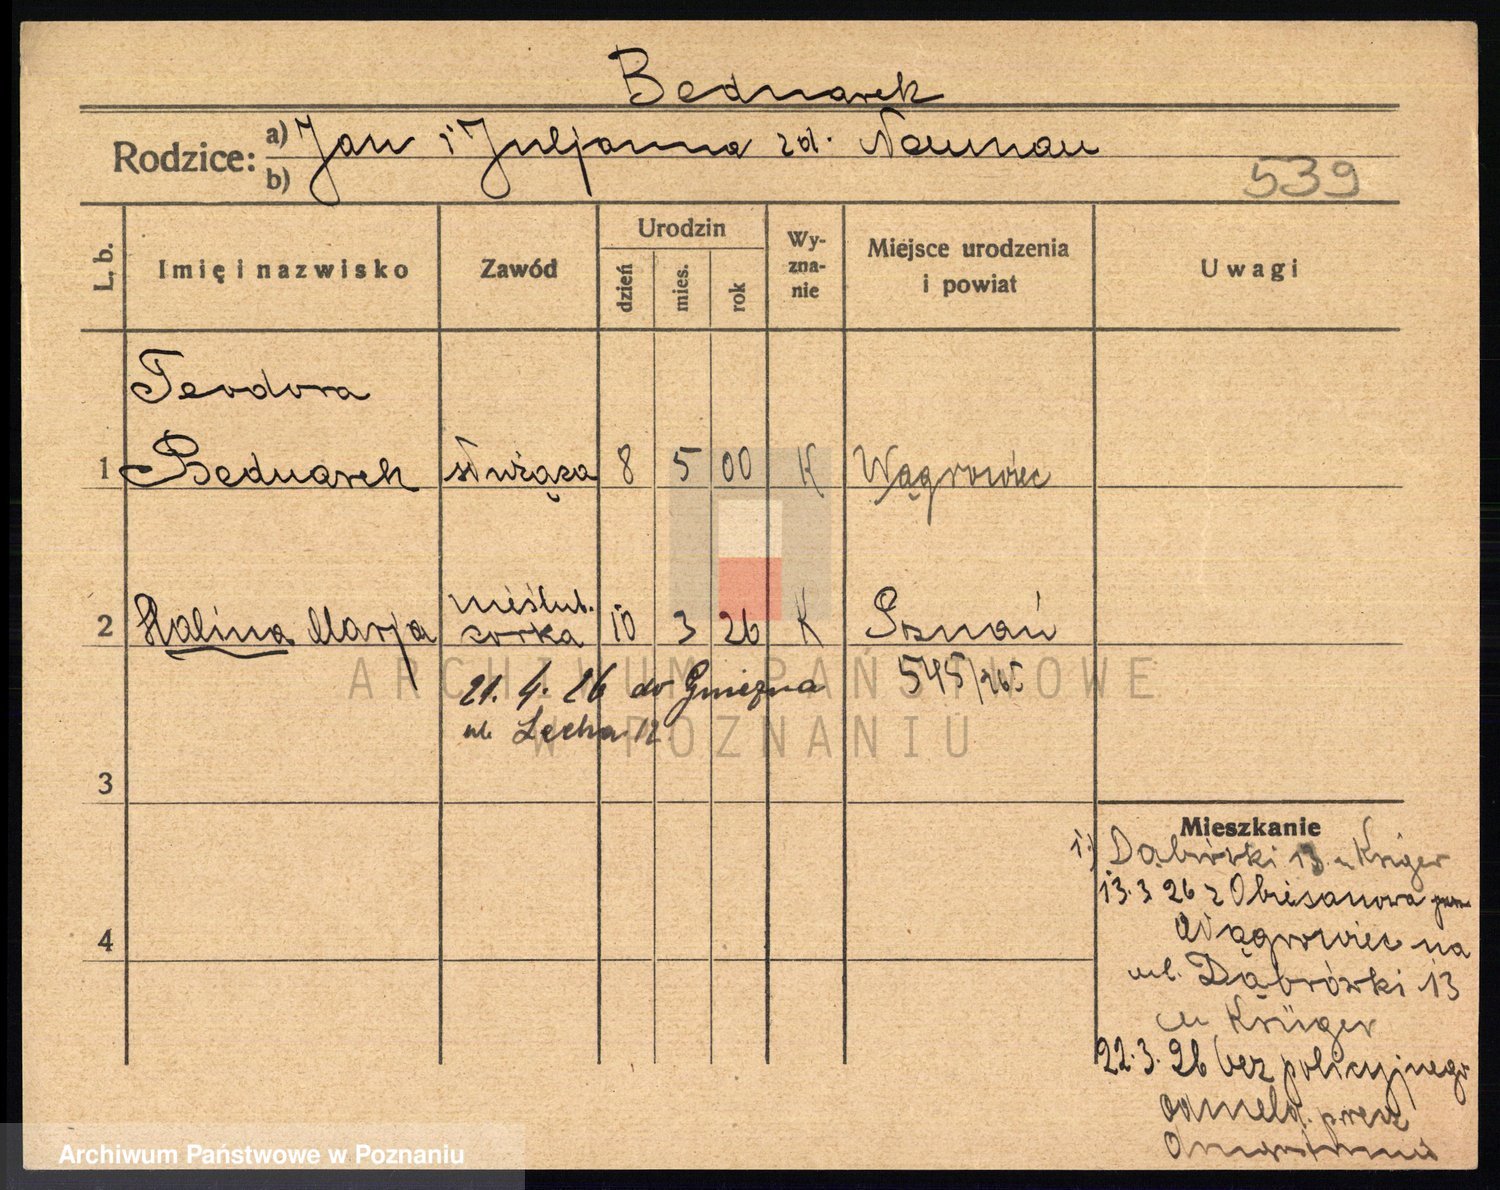 Bednarek
Rodzice: a) Jan i Juljanna zd. Neuman
b)
539
L. b.
Imię i nazwisko
Zawód
Urodzin
dzień
mies.
rok
Wy-
zna-
nie
Miejsce urodzenia
i powiat
Uwagi
Teodora
1 Bednarek służąca 8 5 00 K Wągrowiec
nieślub.
2 Halina Marja corka 10 3 26 K Poznań
545/26
21. 4. 26 do Gniezna
ul. Lecha 12
3
4
Mieszkanie
1.) Dąbrówki 13 u Krüger
13.3 26 z pow.
Wągrowiec na
ul. Dąbrówki 13
u Krüger
22.3. 26 bez policyjnego
odmeld. przez
ARCHIWUM PAŃSTWOWE
W POZNANIU
Archiwum Państwowe w Poznaniu